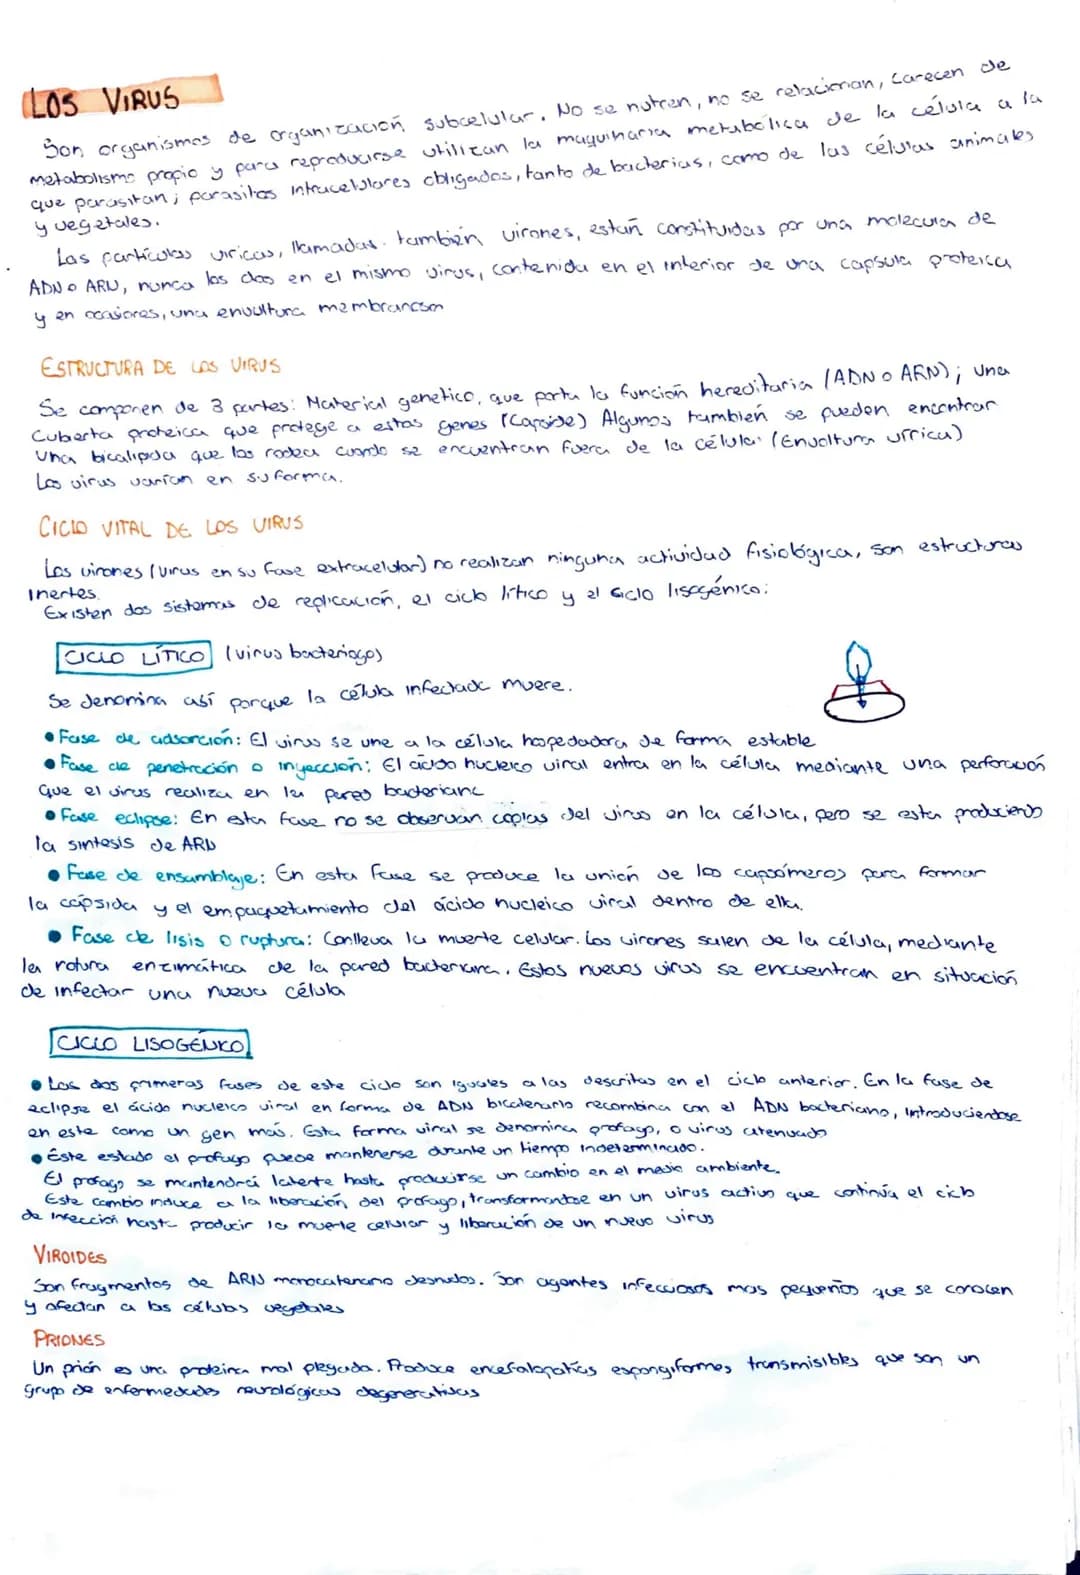 LOS VIRUS
Son organismos de organización subcelular. No se nutren, no se relacionan, carecen de
metabolismo propio y para reproducirse utilizan la maquinaria metabólica de la célula a la
que parasitan; parásitos intracelulares obligados, tanto de bacterias, como de las células animales
y vegetales.
Las partículas víricas, llamadas también virones, están constituidas por una molécula de
ADN o ARN, nunca los dos en el mismo virus, contenida en el interior de una capsula proteica
y en ocasiones, una envultura membranosa
ESTRUCTURA DE LOS VIRUS
Se componen de 3 partes: Material genetico, que porta la función hereditaria (ADN o ARN); una
Cubierta proteica que protege a estos genes (Capside) Algunos también se pueden encontrar
una bicalipida que los rodea cuando se encuentran fuera de la célula (Envoltura vírica)
Los virus varían en su forma.
CICLO VITAL DE LOS VIRUS
Los virones (virus en su fase extracelular) no realizan ninguna actividad fisiológica, son estructuras
inertes.
Existen dos sistemas de replicación, el ciclo lítico y el ciclo lisogénico:
CICLO LÍTICO (virus bacteriago)
Se denomina así porque la célula infectada muere.
• Fase de adsorción: El virus se une a la célula hospedadora de forma estable
• Fase de penetración o inyección: El ácido nucleico viral entra en la célula mediante una perforación
que el virus realiza en la pared bacteriana
• Fase eclipse: En esta fase no se observan copias del virus en la célula, pero se esta produciendo
la sintesis de ARN
• Fase de ensamblaje: En esta fase se produce la unión de los capsómeros para formar
la cápsida y el empaquetamiento del ácido nucleico viral dentro de ella.
• Fase de lisis o ruptura: Conlleva la muerte celular. Los virones salen de la célula, mediante
la rotura enzimática de la pared bacteriana. Estos nuevos virus se encuentran en situación
de infectar una nueva célula
CICLO LISOGÉNICO
• Las dos primeras fases de este ciclo son iguales a las descritas en el ciclo anterior. En la fase de
eclipse el ácido nucleico viral en forma de ADN bicatenario recombina con el ADN bacteriano, introduciendose
en este como un gen más. Esta forma viral se denomina profago, o virus atenuado
• Este estado el profago puede mantenerse durante un tiempo indeterminado.
El profago se mantendrá latente hasta producirse un cambio en el medio ambiente.
Este cambio induce a la liberación del profago, transformandose en un virus activo que continúa el ciclo
de infección hasta producir la muerte celular y liberación de un nuevo virus
VIROIDES
Son fragmentos de ARN monocatenario desnudos. Son agentes infecciosos mas pequeños que se conocen
y afectan a las células vegetales
PRIONES
Un prión es una proteina mal plegada. Produce encefalopatías espongiformes transmisibles que son un
grupo de enfermedades neurológicas degenerativas